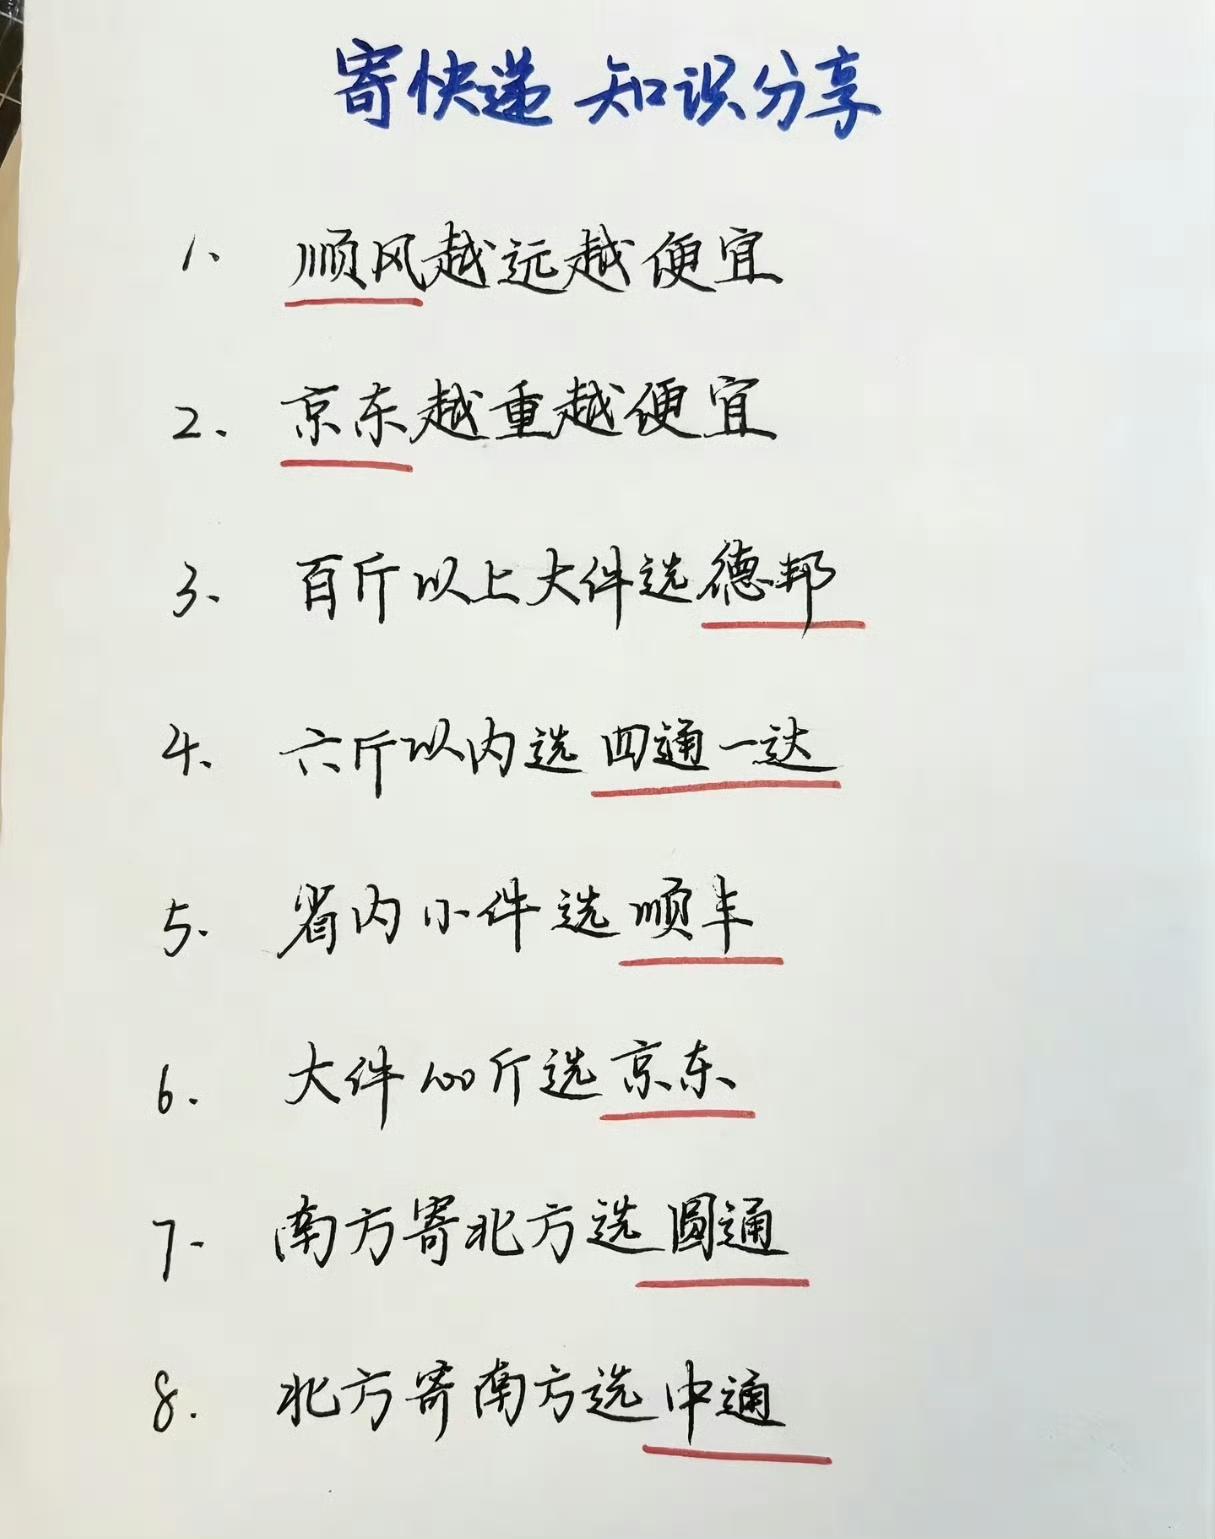 寄快递 知识分享
1、顺风越远越便宜
2、京东越重越便宜
3、百斤以上大件选德邦
4、六斤以内选四通一达
5、省内小件选顺丰
6、大件100斤选京东
7、南方寄北方选圆通
8、北方寄南方选中通